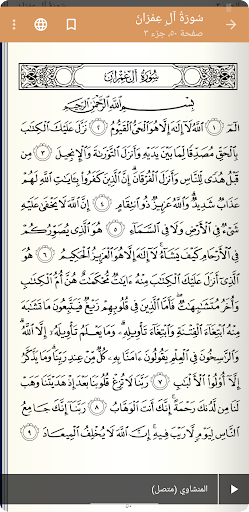 سُورَةُ آلِ عِمْرَانَ
صفحة ٥٠، جزء ٣
سُورَةُ آلِ عِمْرَانَ
بِسْمِ اللَّهِ الرَّحْمَٰنِ الرَّحِيمِ
الٓمٓ ١ ٱللَّهُ لَآ إِلَٰهَ إِلَّا هُوَ ٱلْحَىُّ ٱلْقَيُّومُ ٢ نَزَّلَ عَلَيْكَ ٱلْكِتَٰبَ
بِٱلْحَقِّ مُصَدِّقًا لِّمَا بَيْنَ يَدَيْهِ وَأَنزَلَ ٱلتَّوْرَىٰةَ وَٱلْإِنجِيلَ ٣
مِن قَبْلُ هُدًى لِّلنَّاسِ وَأَنزَلَ ٱلْفُرْقَانَ إِنَّ ٱلَّذِينَ كَفَرُوا۟ بِـَٔايَٰتِ ٱللَّهِ لَهُمْ
عَذَابٌ شَدِيدٌ وَٱللَّهُ عَزِيزٌ ذُو ٱنتِقَامٍ ٤ إِنَّ ٱللَّهَ لَا يَخْفَىٰ عَلَيْهِ
شَىْءٌ فِى ٱلْأَرْضِ وَلَا فِى ٱلسَّمَآءِ ٥ هُوَ ٱلَّذِى يُصَوِّرُكُمْ
فِى ٱلْأَرْحَامِ كَيْفَ يَشَآءُ لَآ إِلَٰهَ إِلَّا هُوَ ٱلْعَزِيزُ ٱلْحَكِيمُ ٦ هُوَ
ٱلَّذِىٓ أَنزَلَ عَلَيْكَ ٱلْكِتَٰبَ مِنْهُ ءَايَٰتٌ مُّحْكَمَٰتٌ هُنَّ أُمُّ ٱلْكِتَٰبِ
وَأُخَرُ مُتَشَٰبِهَٰتٌ فَأَمَّا ٱلَّذِينَ فِى قُلُوبِهِمْ زَيْغٌ فَيَتَّبِعُونَ مَا تَشَٰبَهَ
مِنْهُ ٱبْتِغَآءَ ٱلْفِتْنَةِ وَٱبْتِغَآءَ تَأْوِيلِهِۦ وَمَا يَعْلَمُ تَأْوِيلَهُۥٓ إِلَّا ٱللَّهُ
وَٱلرَّٰسِخُونَ فِى ٱلْعِلْمِ يَقُولُونَ ءَامَنَّا بِهِۦ كُلٌّ مِّنْ عِندِ رَبِّنَا وَمَا يَذَّكَّرُ
إِلَّآ أُو۟لُوا۟ ٱلْأَلْبَٰبِ ٧ رَبَّنَا لَا تُزِغْ قُلُوبَنَا بَعْدَ إِذْ هَدَيْتَنَا وَهَبْ
لَنَا مِن لَّدُنكَ رَحْمَةً إِنَّكَ أَنتَ ٱلْوَهَّابُ ٨ رَبَّنَآ إِنَّكَ جَامِعُ
ٱلنَّاسِ لِيَوْمٍ لَّا رَيْبَ فِيهِ إِنَّ ٱللَّهَ لَا يُخْلِفُ ٱلْمِيعَادَ ٩
المنشاوي (متصل)